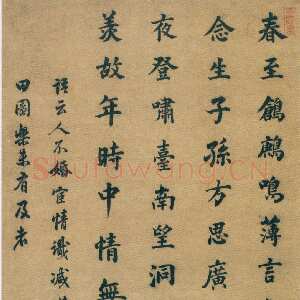 春至鶬鶊鳴薄言
念生子孫方思廣
夜登嘯臺南望洞
羨故年時中情無
語云人不婚宦情識減
田園樂有及者
Shufawang.CN